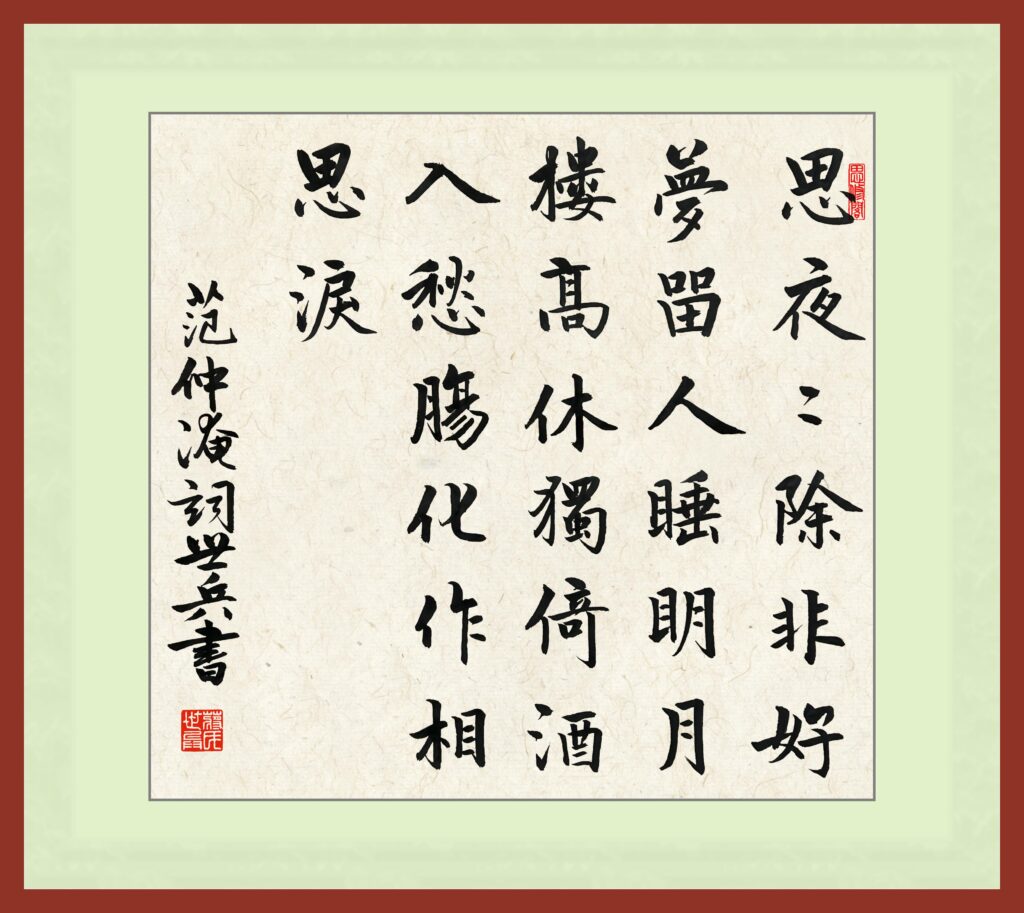 思夜〻除非好
夢留人睡明月
樓髙休獨倚酒
入愁腸化作相
思淚
范仲淹詞世兵書
蔣氏世兵